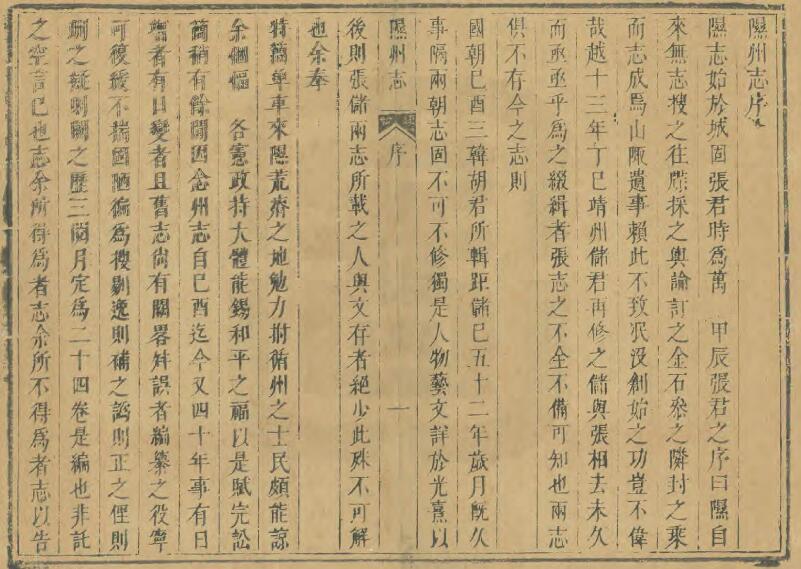 隰州志序
隰志始於城固張君時爲萬 甲辰張君之序曰隰自
來無志搜之往牒採之輿論訂之金石叅之隣封之乘
而志成焉山陬遺事賴此不致泯没創始之功豈不偉
哉越十三年丁巳靖州儲君再修之儲與張相去未久
而亟亟乎爲之綴緝者張志之不全不備可知也兩志
俱不存今之志則
國朝己酉三韓胡君所輯距儲已五十二年歲月旣久
事隔兩朝志固不可不修獨是人物藝文詳於光熹以
隰州志 序 一
後則張儲兩志所載之人與文存者絶少此殊不可解
也余奉
特簡单車來隰荒瘠之地勉力拊循州之士民頗能諒
余悃愊 各憲政持大體能錫和平之福以是賦完訟
簡稍有餘閒因念州志自己酉迄今又四十年事有日
增者有日變者且舊志尚有闕畧舛誤者編纂之役寧
可復緩不揣固陋徧爲搜剔逸則補之譌則正之俚則
刪之疑則闕之歷三閲月定爲二十四卷是編也非託
之空言已也志余所得爲者志余所不得爲者志以告